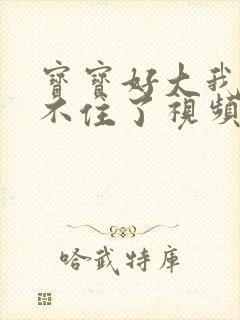 寶寶好大我
不住了視頻
哈武特庫